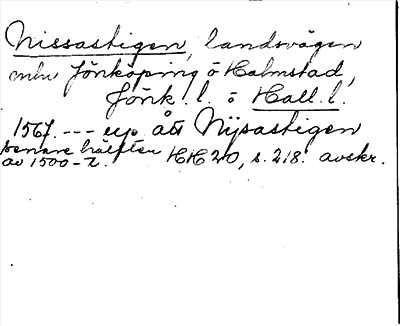 Nissastigen, landsvägen
mln Jönköping o Halmstad,
Jönk. l. o Hall. l.
1567. --- up ått Nijsastigen
senare hälften
av 1500-t. HH 20, s. 218. avskr.